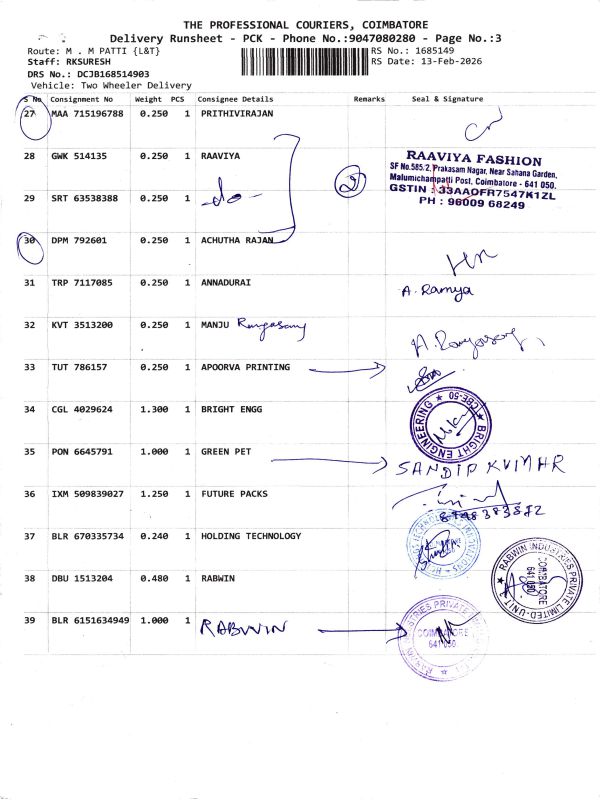 THE PROFESSIONAL COURIERS, COIMBATORE
Delivery Runsheet - PCK - Phone No.:9047080280 - Page No.:3
Route: M . M PATTI {L&T} RS No.: 1685149
Staff: RKSURESH RS Date: 13-Feb-2026
DRS No.: DCJB168514903
Vehicle: Two Wheeler Delivery
S No Consignment No Weight PCS Consignee Details Remarks Seal & Signature
27 MAA 715196788 0.250 1 PRITHIVIRAJAN
28 GWK 514135 0.250 1 RAAVIYA
RAAVIYA FASHION
SF No.585/2, Prakasam Nagar, Near Sahana Garden,
Malumichampatti Post, Coimbatore - 641 050.
GSTIN : 33AAQFR7547K1ZL
PH : 96009 68249
29 SRT 63538388 0.250 1 -do- 2
30 DPM 792601 0.250 1 ACHUTHA RAJAN
31 TRP 7117085 0.250 1 ANNADURAI A. Ramya
32 KVT 3513200 0.250 1 MANJU Rangasamy A. Rangasamy
33 TUT 786157 0.250 1 APOORVA PRINTING
34 CGL 4029624 1.300 1 BRIGHT ENGG
★ BRIGHT ENGINEERING ★ CBE-50
35 PON 6645791 1.000 1 GREEN PET SANDIP KUMAR
36 IXM 509839027 1.250 1 FUTURE PACKS
37 BLR 670335734 0.240 1 HOLDING TECHNOLOGY
38 DBU 1513204 0.480 1 RABWIN
RABWIN INDUSTRIES PRIVATE LIMITED-UNIT
COIMBATORE
641 050
39 BLR 6151634949 1.000 1 RABWIN
COIMBATORE
641 050